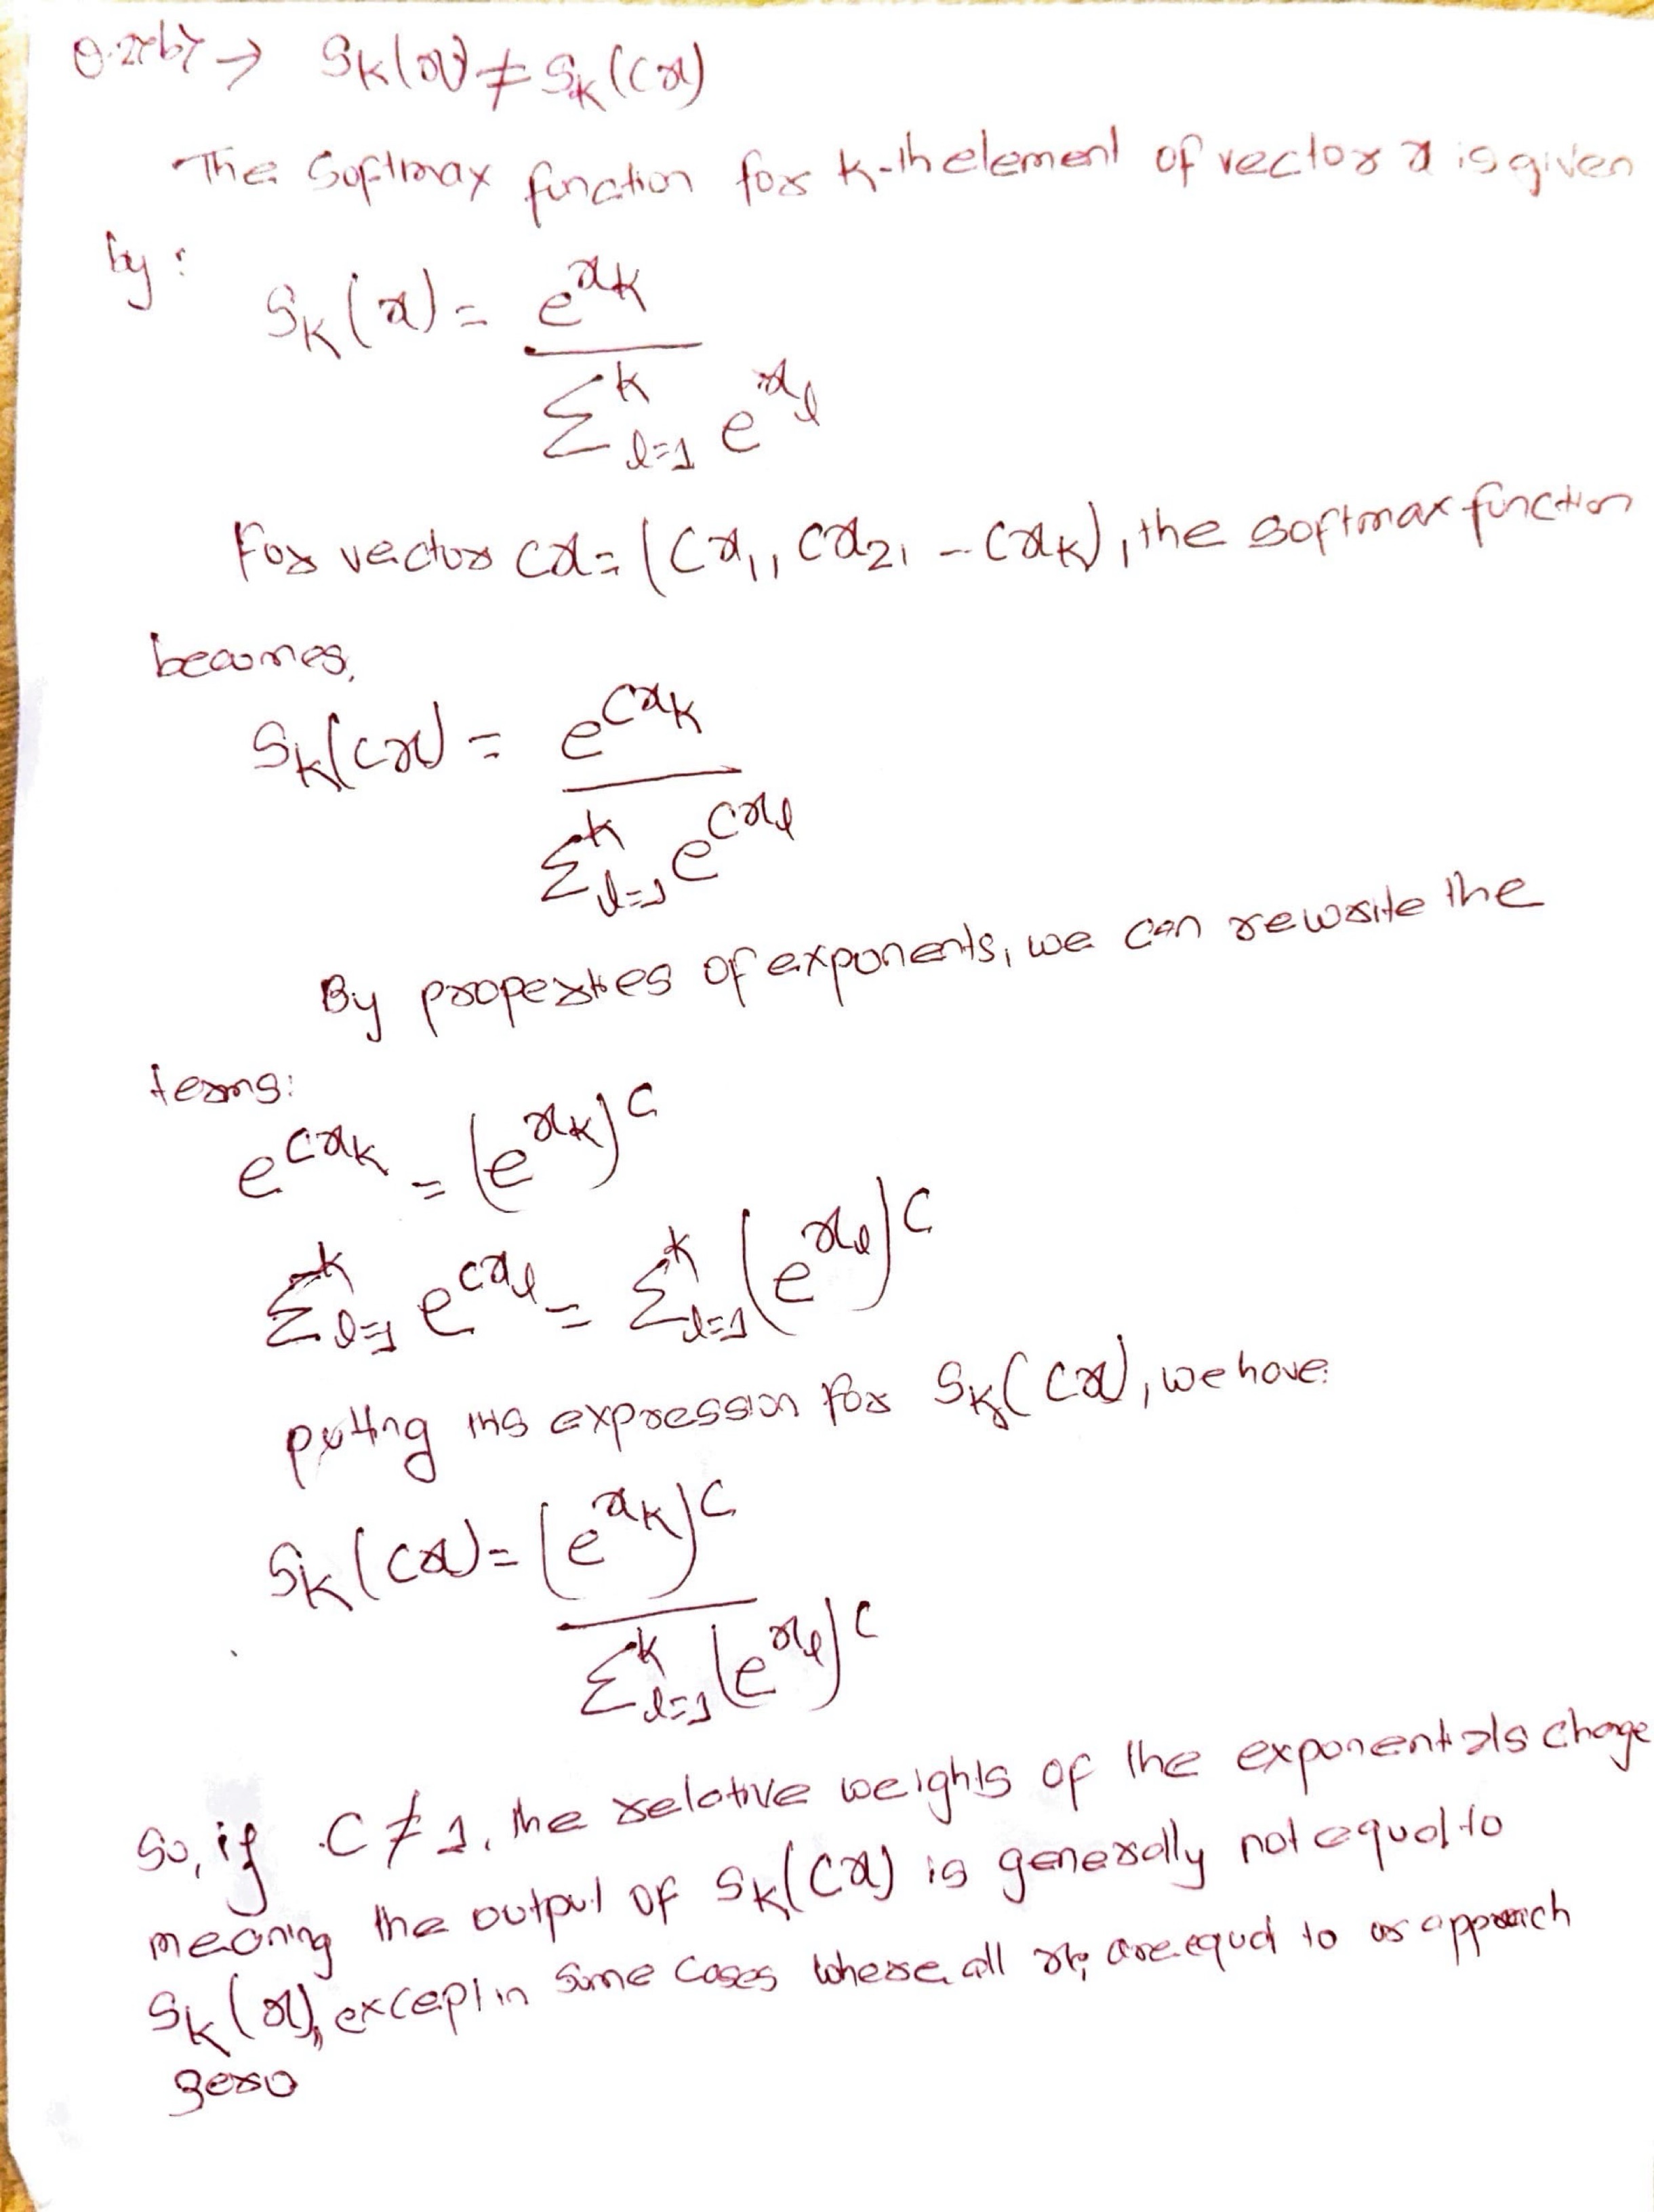 Q.2>b> → Sk(x) ≠ Sk(Cx)
The Softmax function for k-th element of vector x is given
by:
Sk(x) = e^xk
Σ^k l=1 e^xl
For vector Cx = (Cx1, Cx2, - Cxk), the softmax function
becomes,
Sk(Cx) = e^Cxk
Σ^k l=1 e^Cxl
By properties of exponents, we can rewrite the
terms:
e^Cxk = (e^xk)^C
Σ^k l=1 e^Cxl = Σ^k l=1 (e^xl)^C
putting this expression for Sk(Cx), we have:
Sk(Cx) = (e^xk)^C
Σ^k l=1 (e^xl)^C
So, if C ≠ 1, the relative weights of the exponentials change
meaning the output of Sk(Cx) is generally not equal to
Sk(x), except in some cases where all are equal to or approach
zero